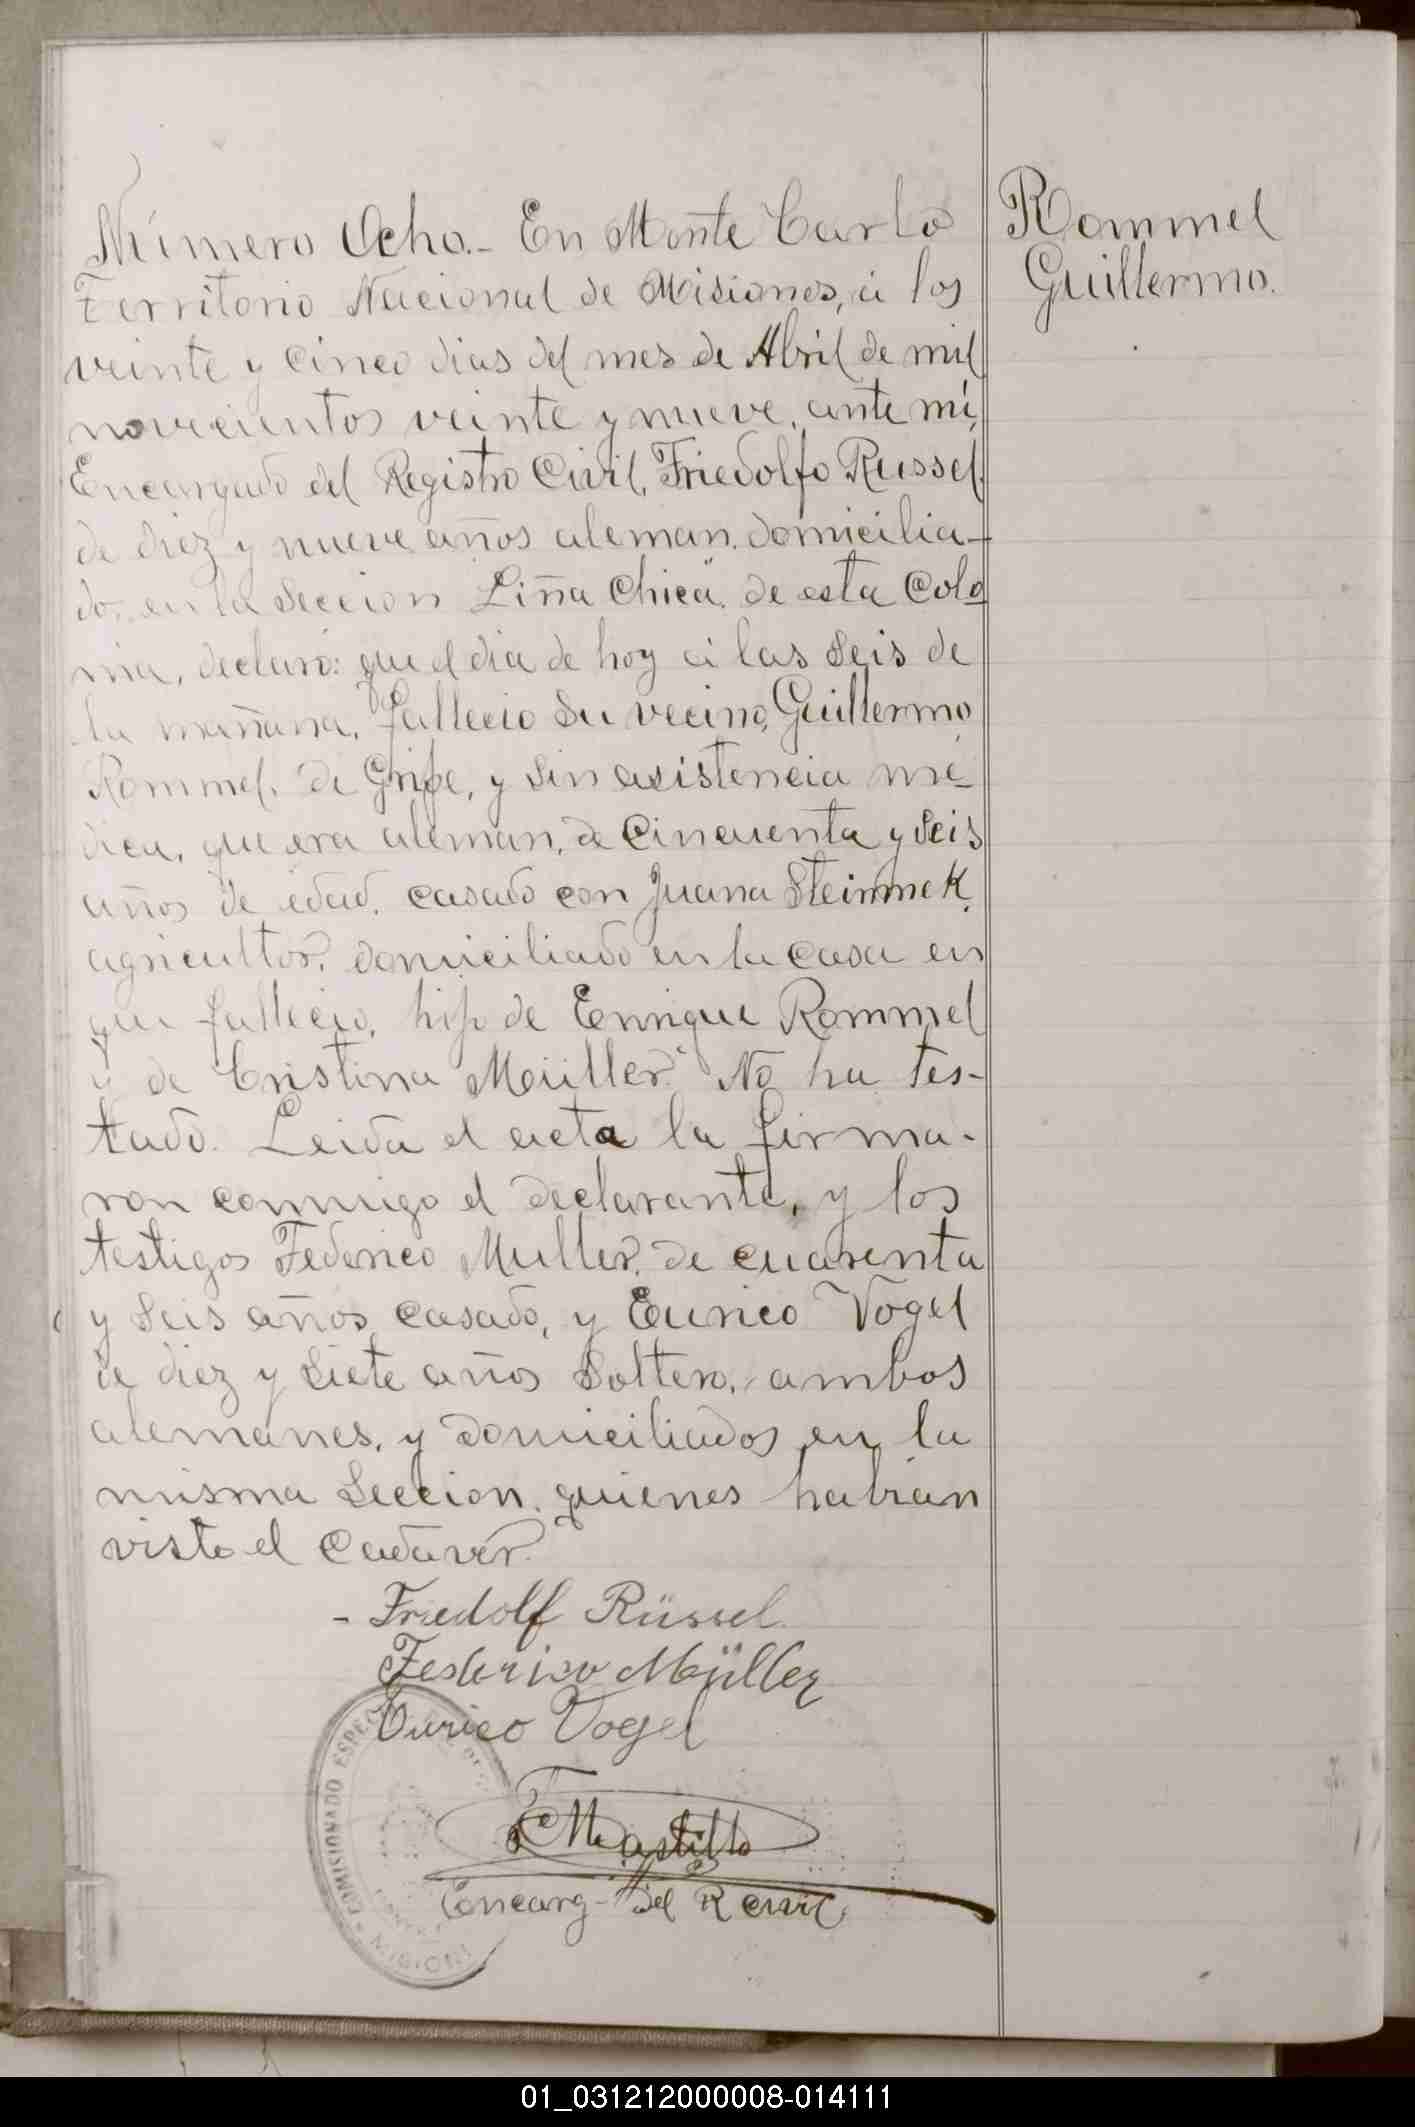 Número Ocho.- En Monte Carlo
Territorio Nacional de Misiones, á los
veinte y cinco dias del mes de Abril de mil
novecientos veinte y nueve, ante mí,
Encargado del Registro Civil, Friedolfo Russel,
de diez y nueve años aleman, domicilia-
do, en la Seccion Liña Chica, de esta Colo
nia, declaró: que el dia de hoy á las Seis de
la mañana, fallecio Su vecino, Guillermo
Rommel, de Gripe, y Sin asistencia mé-
dica, que era aleman, de Cincuenta y Seis
años de edad, casado con Juana Steinmek,
agricultor, domiciliado en la Casa en
que fallecio, hijo de Enrique Rommel
y de Cristina Müller. No ha tes-
tado. Leida el acta la firma-
ron conmigo el declarante, y los
testigos Federico Muller, de cuarenta
y Seis años, casado, y Eurico Vogel
de diez y Siete años Soltero, ambos
alemanes, y domiciliados en la
misma Seccion, quienes habian
visto el Cadaver.
- Friedolf Rüssel
Federico Müller
Eurico Vogel
Encarg- del R Civil
COMISIONADO ESPEC
MISIONES
Rommel
Guillermo.
01_031212000008-014111